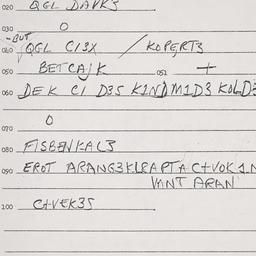 020 QGL DAVK3
030 O
-BUT
040 QGL CI3X / KOPERT3
050 BETCAJK 051 +
060 DEK CI D3S K1ND M1D3 KOLD3
O
070
080 FISBENKAL3
090 EROT ARANG3KLRAPTA C+VOK1N
VANT ARAN
100 C+VEK3S